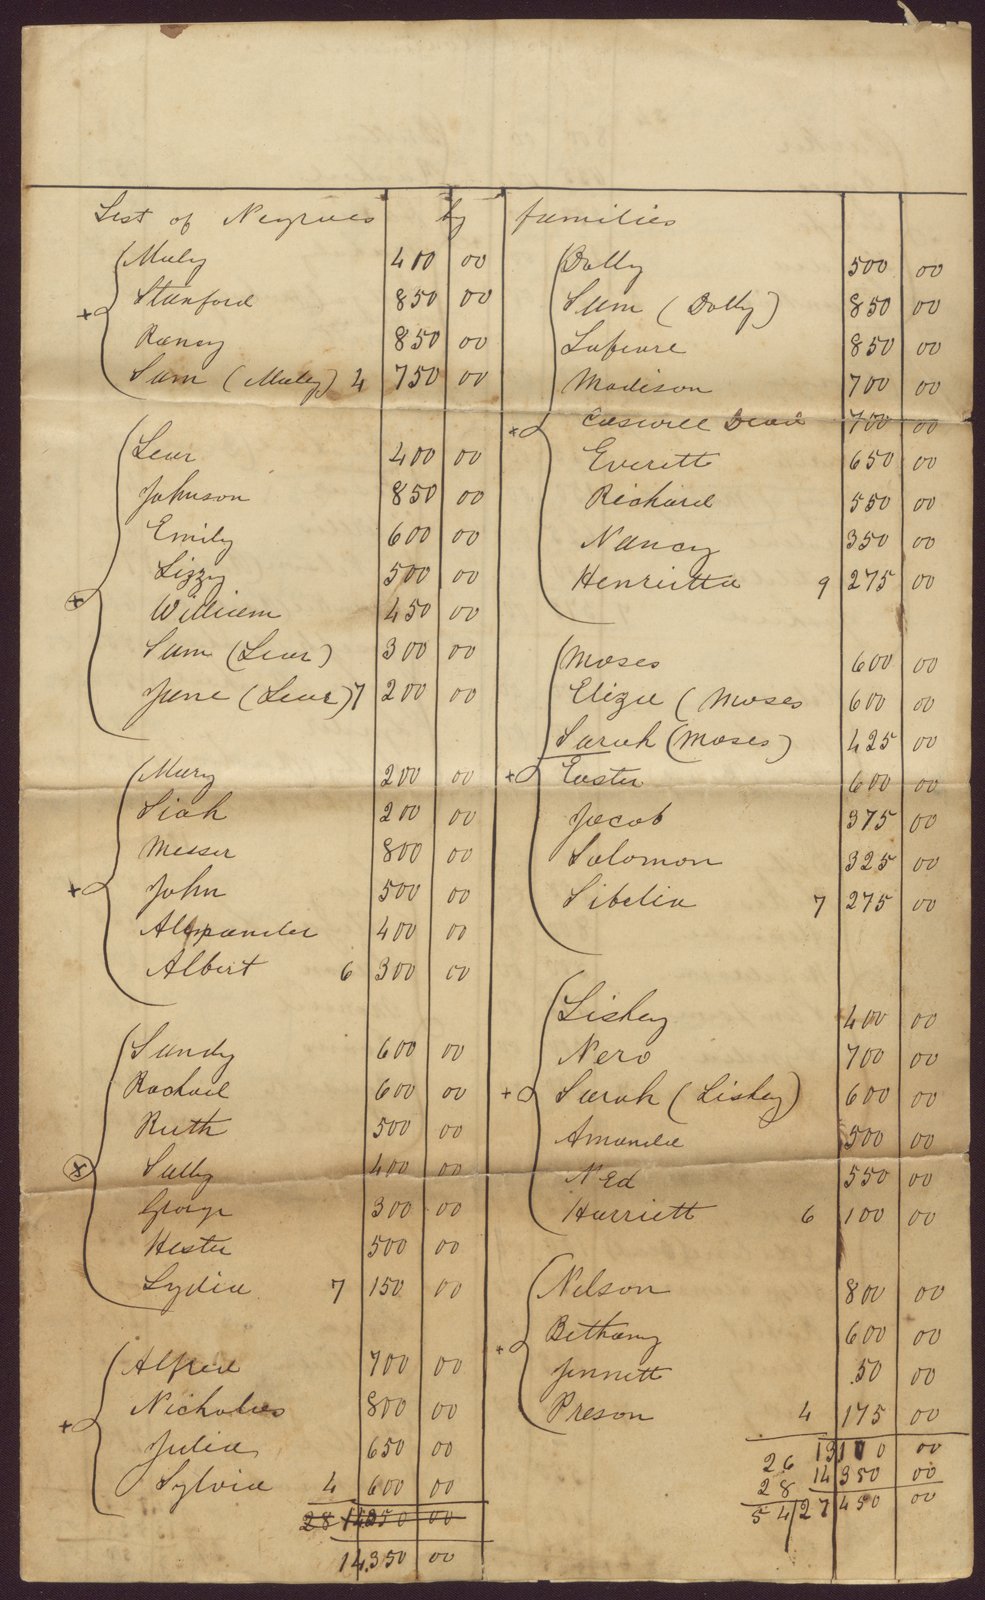 List of Negroes by families
Muley 400 00
Stanford 850 00
Rancy 850 00
Sam (Muley) 4 750 00
Lear 400 00
Johnson 850 00
Emily 600 00
Lizzy 500 00
William 450 00
Sam (Lear) 300 00
Jane (Lear) 7 200 00
Mary 200 00
Siah 200 00
Messer 800 00
John 500 00
Alexander 400 00
Albert 6 300 00
Sandy 600 00
Rachael 600 00
Ruth 500 00
Sally 400 00
George 300 00
Hester 500 00
Lydia 7 150 00
Alfred 700 00
Nicholas 800 00
Julia 650 00
Sylvia 4 600 00
28 00
14,350 00
Dolly 500 00
Sam (Dolly) 850 00
Lafeivre 850 00
Madison 700 00
Caswell Dead 700 00
Everett 650 00
Richard 550 00
Nancy 350 00
Henrietta 9 275 00
Moses 600 00
Eliza (Moses 600 00
Sarah (Moses) 425 00
Easter 600 00
Jacob 375 00
Solomon 325 00
Sibelia 7 275 00
Liskey 400 00
Nero 700 00
Sarah (Liskey) 600 00
Amanda 500 00
Ned 550 00
Harriett 6 100 00
Nelson 800 00
Bethany 600 00
Jennett 50 00
Preson 4 175 00
26 13100 00
28 14350 00
54 27450 00